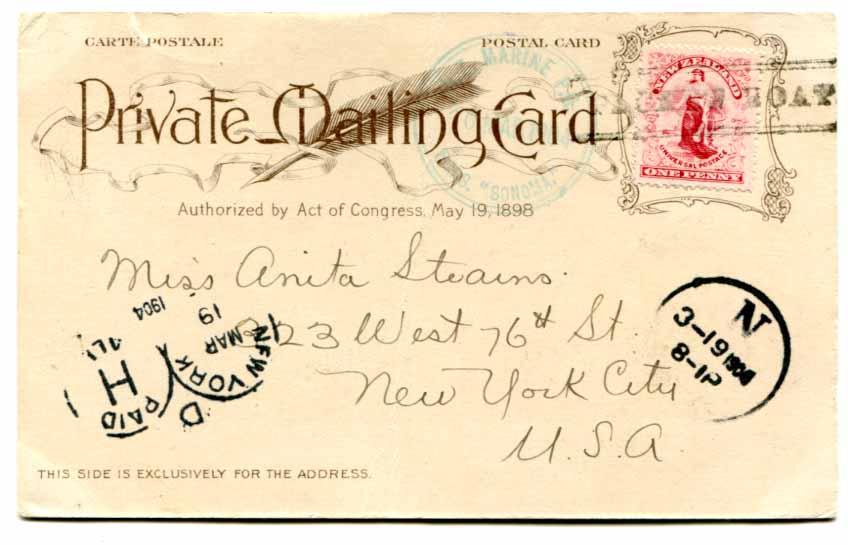 CARTE POSTALE
POSTAL CARD
MARINE
S. "SONOMA."
NEW ZEALAND
UNIVERSAL POSTAGE
ONE PENNY
Private Mailing Card
Authorized by Act of Congress, May 19, 1898
Miss Anita Stearns.
323 West 76th St.
New York City
U.S.A.
NEW YORK
MAR
19
1904
D
PAID
H
ALL
N
3-19 1904
8-1P
THIS SIDE IS EXCLUSIVELY FOR THE ADDRESS.